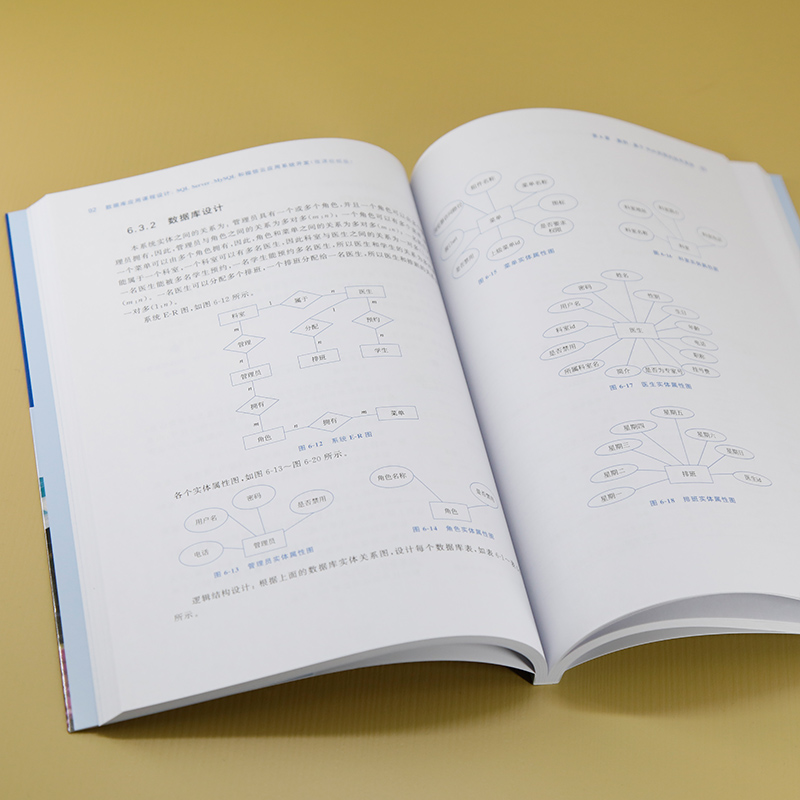 92 数据库应用案例设计：SQL Server、MySQL
6.3.2 数据库设计
本系统实体之间的关系为，管理员具有一个或多个角色，并且一个角色可以
理员拥有，因此，管理员与角色之间的关系为多对多(m,n)，一个角色可以有多
一个菜单可以由多个角色拥有，因此，角色和菜单之间的关系为多对多(m,n)。
能属于一个科室，一个科室可以有多名医生，因此科室与医生之间的关系为一对
一名医生能被多名学生预约，一名学生能预约多名医生，所以医生和学生的关系
(m,n)。一名医生可以分配多个排班，一个排班分配给一名医生，所以医生和
一对多(1,n)。
系统E-R图，如图6-12所示。
科室
1
属于
n
医生
m
n
1
m
管理
分配
预约
n
n
n
管理员
排班
学生
m
拥有
n
角色
n
拥有
m
菜单
图 6-12 系统E-R图
各个实体属性图，如图6-13～图6-20所示。
用户名
密码
是否禁用
电话
管理员
图 6-13 管理员实体属性图
角色名称
是否禁用
角色
图 6-14 角色实体属性图
逻辑结构设计：根据上面的数据库实体关系图，设计每个数据库表，如表6-2～
所示。
组件名称
菜单名称
图标
菜单
是否要求
权限
上级菜单id
是否禁用
图 6-15 菜单实体属性图
科室
图 6-16 科室实体属性图
姓名
密码
权限
用户名
生日
科室id
医生
年龄
是否禁用
电话
职称
所属科室名
简介
是否为专家号
挂号费
图 6-17 医生实体属性图
星期五
星期四
星期六
星期三
星期日
星期二
排班
星期一
医生id
图 6-18 排班实体属性图